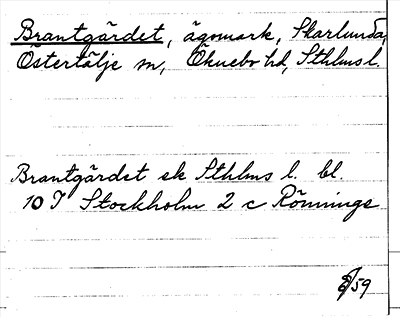 Brantgärdet, ägomark, Skarlunda,
Östertälje sn, Öknebo hd, Sthlms l.
Brantgärdet ek Sthlms l. bl.
10 I Stockholm 2 c Rönninge
/59